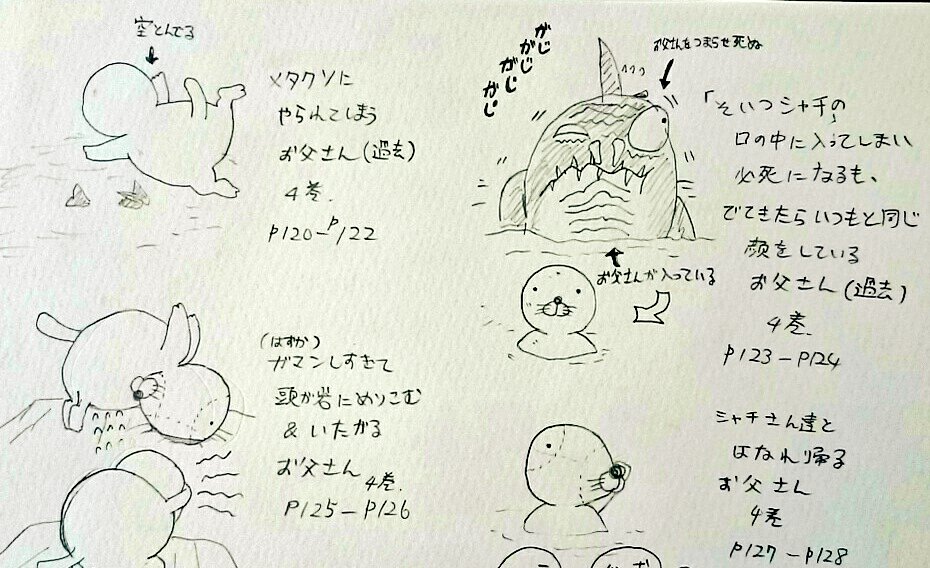 空とんでる
メタクソに
やられてしまう
お父さん(過去)
4巻.
P120-P122
がじ
がじ
がじ
がじ
お父さんをつまらせ死ぬ
「そいつシャチの
口の中に入ってしまい
必死になるも、
でてきたらいつもと同じ
顔をしている
お父さん(過去)
4巻.
P123-P124
お父さんが入っている
(はずか)
ガマンしすぎて
頭が岩にめりこむ
&いたがる
お父さん
4巻.
P125-P126
シャチさん達と
はなれ帰る
お父さん
4巻
P127-P128